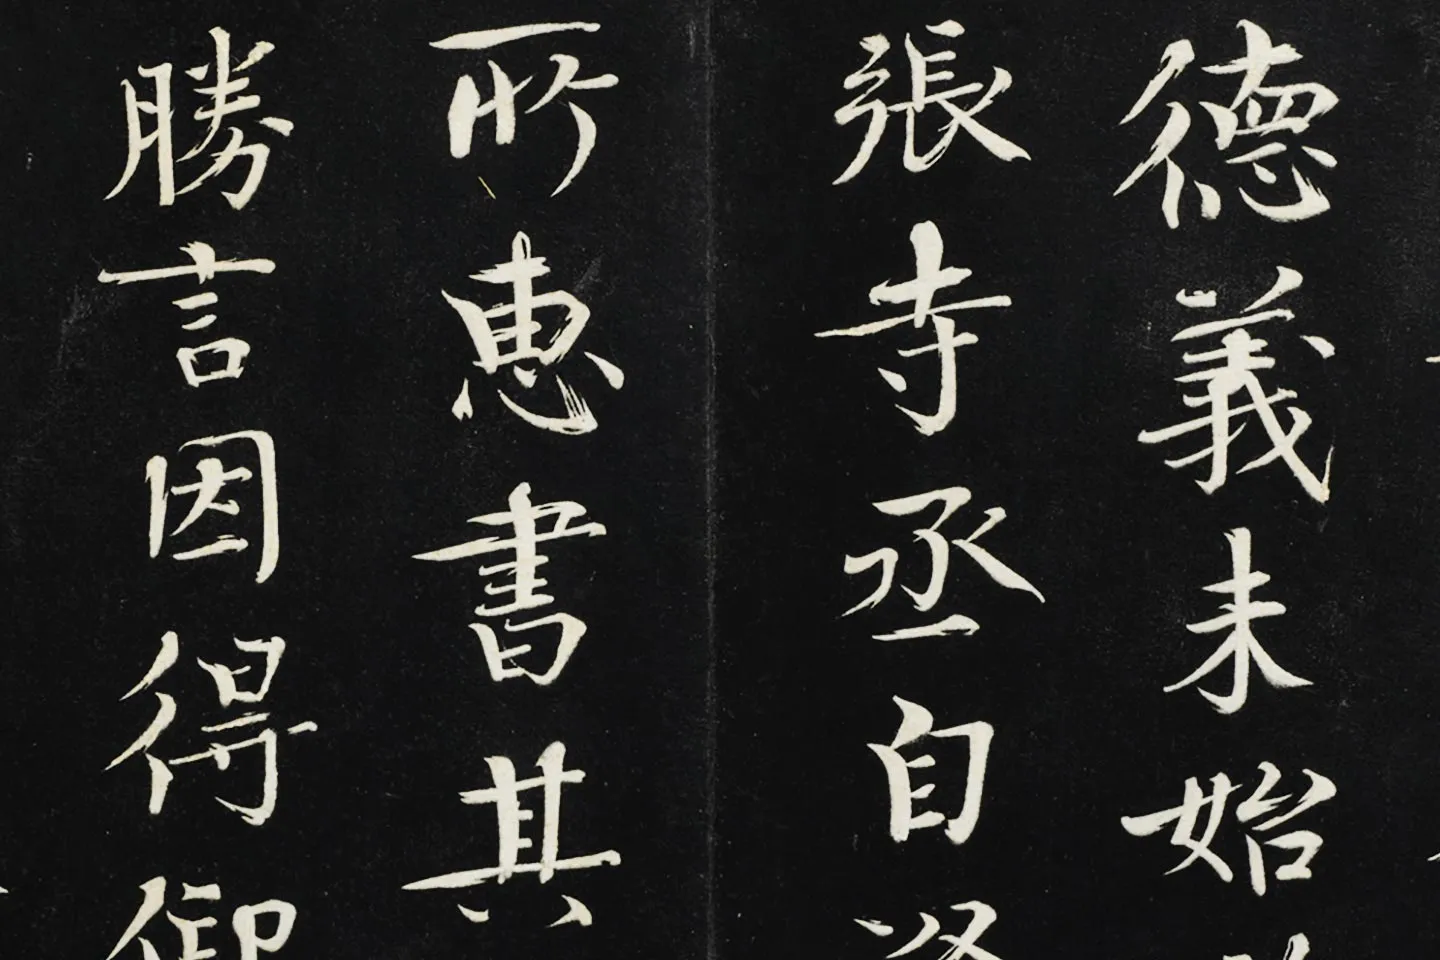 德義未始
張寺丞自
所惠書其
勝言因得御